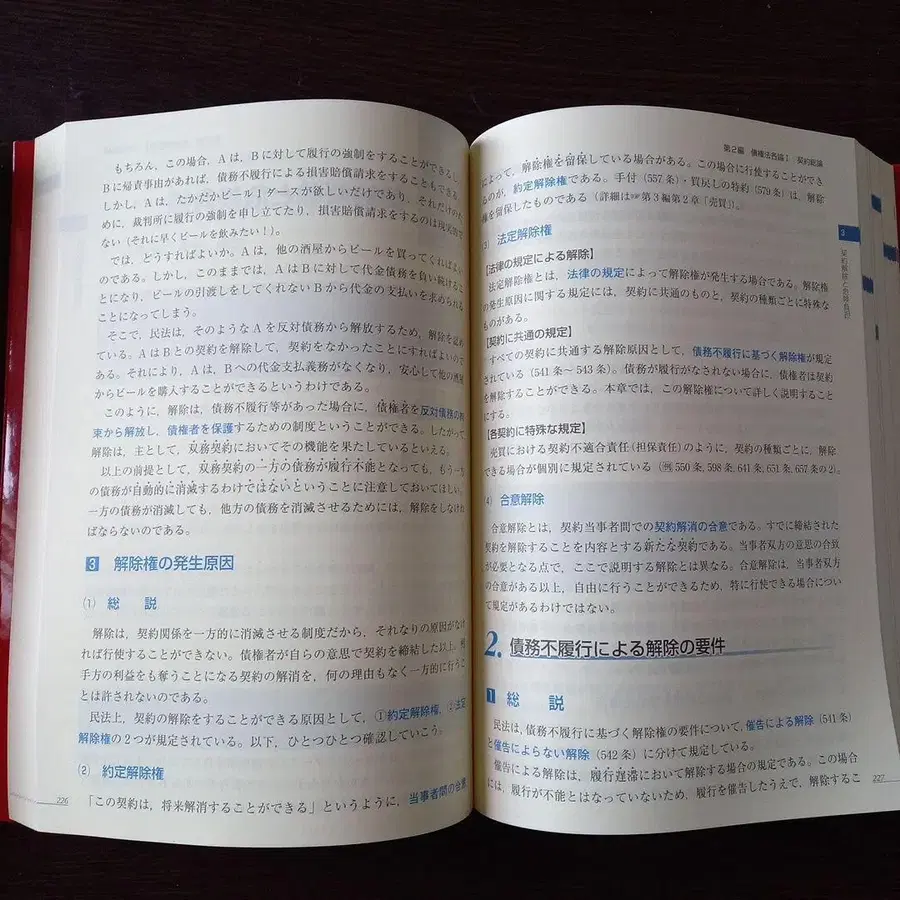 もちろん，この場合，Aは，Bに対して履行の強制をすることができるし，
Bに帰責事由があれば，債務不履行による損害賠償請求をすることもできる。
しかし，Aは，たかだかビール1ダースが欲しいだけであり，それだけのた
めに，裁判所に履行の強制を申し立てたり，損害賠償請求をするのは現実的で
ない（それに早くビールを飲みたい！）。
では，どうすればよいか。Aは，他の酒屋からビールを買ってくればよい
のである。しかし，このままでは，AはBに対して代金債務を負い続けるこ
とになり，ビールの引渡しをしてくれないBから代金の支払いを求められる
ことになってしまう。
そこで，民法は，そのようなAを反対債務から解放するため，解除を認め
ている。AはBとの契約を解除して，契約をなかったことにすればよいので
ある。それにより，Aは，Bへの代金支払義務がなくなり，安心して他の酒屋
からビールを購入することができるというわけである。
このように，解除は，債務不履行等があった場合に，債権者を反対債務の拘
束から解放し，債権者を保護するための制度ということができる。したがって，
解除は，主として，双務契約においてその機能を果たしているといえる。
以上の前提として，双務契約の一方の債務が履行不能となっても，もう一方
の債務が自動的に消滅するわけではないということに注意しておいてほしい。
一方の債務が消滅しても，他方の債務を消滅させるためには，解除をしなけれ
ばならないのである。
3 解除権の発生原因
(1) 総 説
解除は，契約関係を一方的に消滅させる制度だから，それなりの原因がなけ
れば行使することができない。債権者が自らの意思で契約を締結した以上，相
手方の利益をも奪うことになる契約の解消を，何の理由もなく一方的に行うこ
とは許されないのである。
民法上，契約の解除をすることができる原因として，①約定解除権，②法定
解除権の2つが規定されている。以下，ひとつひとつ確認していこう。
(2) 約定解除権
「この契約は，将来解消することができる」というように，当事者間の合意
226
第2編 債権法各論Ⅰ 契約総論
によって，解除権を留保している場合がある。この場合に行使することができ
るのが，約定解除権である。手付（557条）・買戻しの特約（579条）は，解除
権を留保したものである（詳細は☞第3編第2章「売買」）。
(3) 法定解除権
【法律の規定による解除】
法定解除権とは，法律の規定によって解除権が発生する場合である。解除権
の発生原因に関する規定には，契約に共通のものと，契約の種類ごとに特殊な
ものがある。
【契約に共通の規定】
すべての契約に共通する解除原因として，債務不履行に基づく解除権が規定
されている（541条～543条）。債務が履行がなされない場合に，債権者は契約
を解除することができる。本章では，この解除権について詳しく説明すること
にする。
【各契約に特殊な規定】
売買における契約不適合責任（担保責任）のように，契約の種類ごとに，解除
できる場合が個別に規定されている（例 550条，598条，641条，651条，657条の2）。
(4) 合意解除
合意解除とは，契約当事者間での契約解消の合意である。すでに締結された
契約を解除することを内容とする新たな契約である。当事者双方の意思の合致
が必要となる点で，ここで説明する解除とは異なる。合意解除は，当事者双方
の合意がある以上，自由に行うことができるため，特に行使できる場合につい
て規定があるわけではない。
2. 債務不履行による解除の要件
1 総 説
民法は，債務不履行に基づく解除権の要件について，催告による解除（541条）
と催告によらない解除（542条）に分けて規定している。
催告による解除は，履行遅滞において解除する場合の規定である。この場合
には，履行が不能とはなっていないため，履行を催告したうえで，解除するこ
227
3